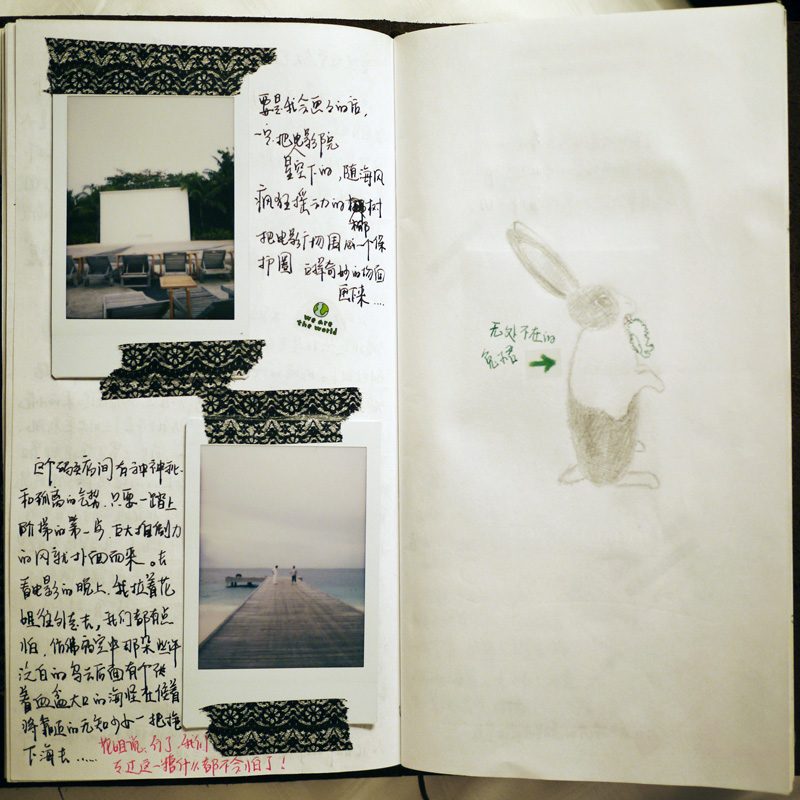 要是我会画画的话，
一定把电影院
星空下的，随海风
疯狂摇动的椰树
把电影广场围成一个保
护圈 这样奇妙的场面
画下来....
we are
the world
这个码头病间有种神秘
和孤离的气势，只要一踏上
阶梯的第一步，巨大推制力
的风就扑面而来。去
看电影的晚上，我拉着花
姐往外走去，我们都有点
怕，仿佛夜空中那朵些许
泛白的乌云后面有个张
着血盆大口的海怪在候着
将靠近的无知少女一把拖
下海去.....
花姐说，行了，我们
走过这一擂什么都不会怕了！
无处不在的
兔